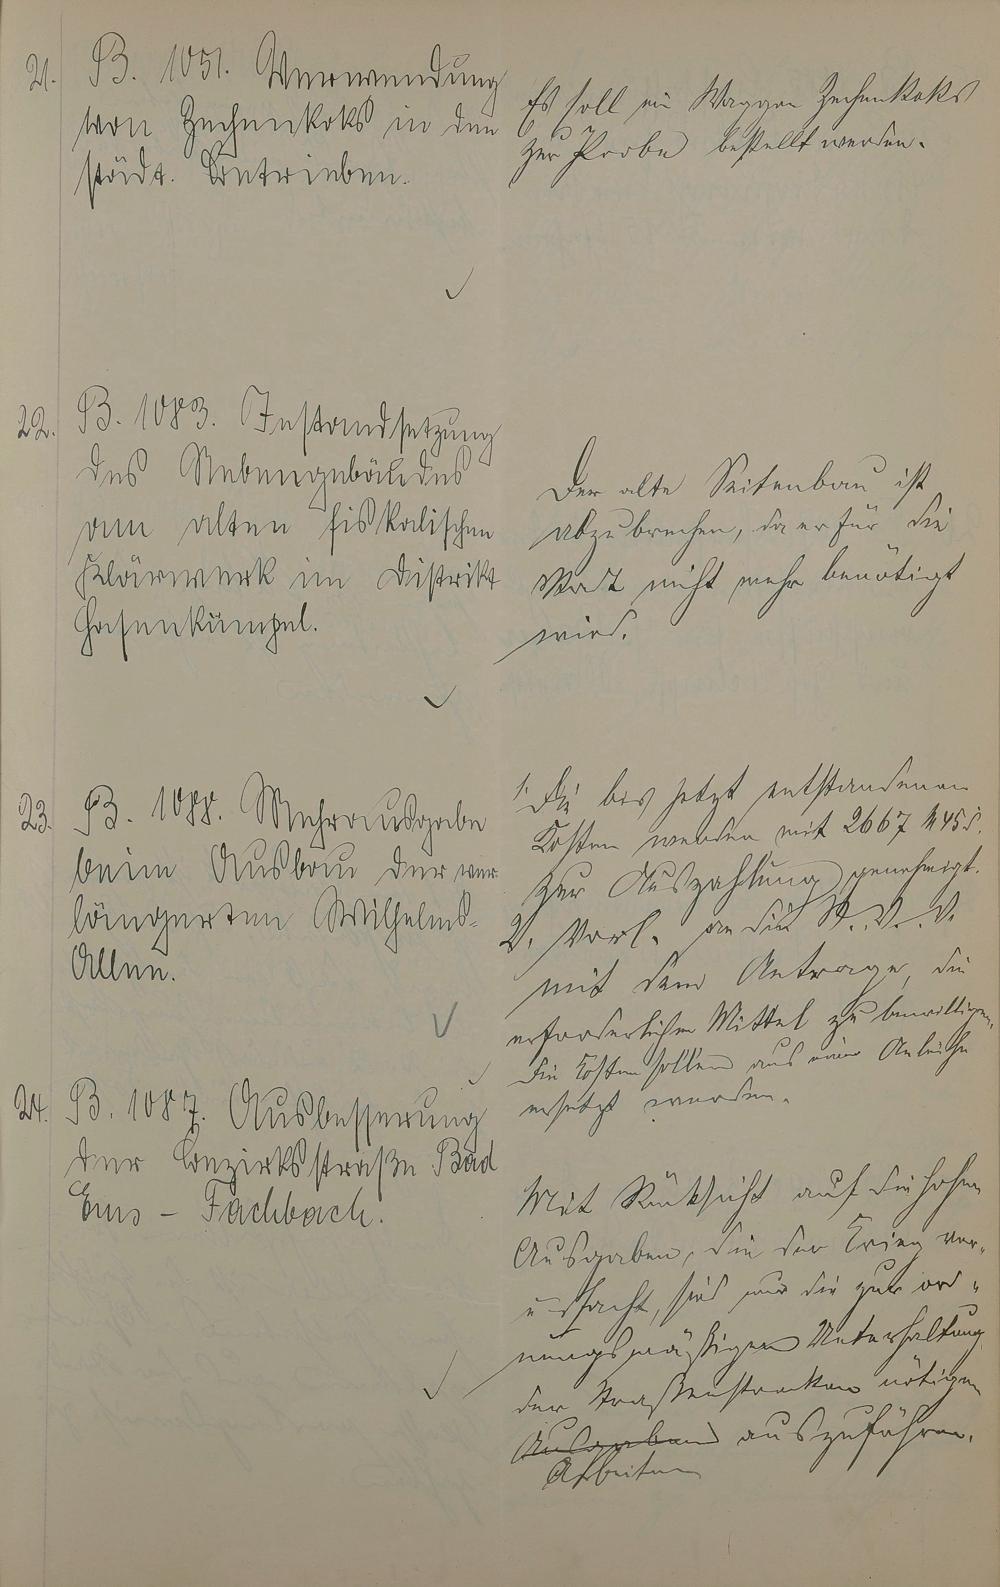 21. B. 1051. Verwendung
von Zechenkoks in den
städt. Betrieben.
Es soll ein Waggon Zechenkoks
zur Probe bestellt werden.
22. B. 1083. Instandsetzung
des Nebengebäudes
am alten fiskalischen
Klärwerk im Distrikt
Hasenkümpel.
Der alte Seitenbau ist
abzubrechen, da er für die
Stadt nicht mehr benötigt
wird.
23. B. 1088. Mehrausgabe
beim Ausbau der ver
längerten Wilhelms-
Allee.
1. Die bis jetzt entstandenen
Kosten werden mit 2667 M 45 S.
zur Auszahlung genehmigt.
2. Vorl. an die St. V. V.
mit dem Antrage, die
erforderlichen Mittel zu bewilligen.
Die Kosten sollen aus einer Anleihe
ersetzt werden.
24. B. 1087. Ausbesserung
der Bezirksstraße Bad
Ems - Fachbach.
Mit Rücksicht auf die hohen
Ausgaben, die der Krieg ver-
ursacht, sind nur die zur ord-
nungsmäßigen Unterhaltung
der Straßenstrecken nötigen
Ausgaben auszuführen.
Arbeiten